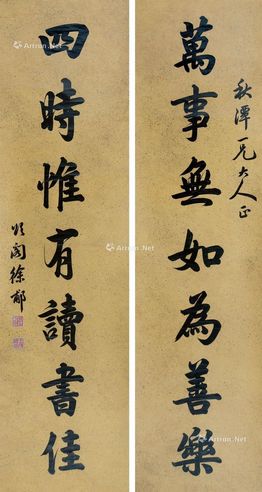 秋潭一兄大人正
萬事無如為善樂
四時惟有讀書佳
徐郙
Artron.Net
Artron.Net
Artron.Net
Artron.Net